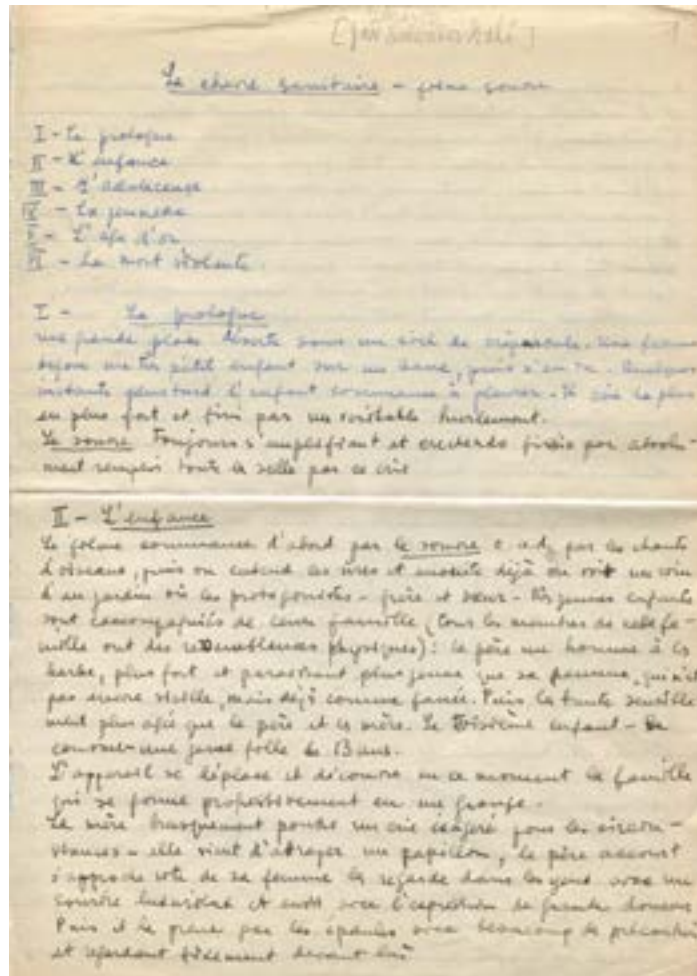 La chèvre sanitaire - poème sonore
I - Le prologue
II - L'enfance
III - L'adolescence
IV - La jeunesse
V - L'âge d'or
VI - La mort violente
I - Le prologue
une grande place déserte sous un ciel de crépuscule. Une femme
dépose un très petit enfant sur un banc, puis s'en va. Quelques
instants plus tard l'enfant commence à pleurer. Il crie de plus
en plus fort et finit par un véritable hurlement.
Le sonore toujours s'amplifiant et crescendo finira par absolu-
ment remplir toute la salle par ce cri
II - L'enfance
Le poème commence d'abord par le sonore c.a.d. par les chants
d'oiseaux, puis on entend les rires et ensuite déjà on voit un coin
d'un jardin où les protagonistes - frère et sœur - très jeunes enfants
sont accompagnés de leur famille (tous les membres de cette fa-
mille ont des ressemblances physiques): le père un homme à la
barbe, plus fort et paraissant plus jeune que sa femme, qui n'est
pas encore vieille, mais déjà comme fanée. Puis, la tante sensible
ment plus agée que le père et la mère. Le troisième enfant -
une jeune fille de 13 ans.
L'appareil se déplace et découvre en ce moment la famille
qui se forme progressivement en un groupe.
La mère brusquement pousse un crie exagéré pour les circon-
stances - elle vient d'atraper un papillon, le père accourt
s'approche vite de sa femme la regarde dans les yeux avec un
sourire et avec l'expression de grande douceur
Puis il la prend par les épaules avec beaucoup de précaution
et regardant fixement devant lui